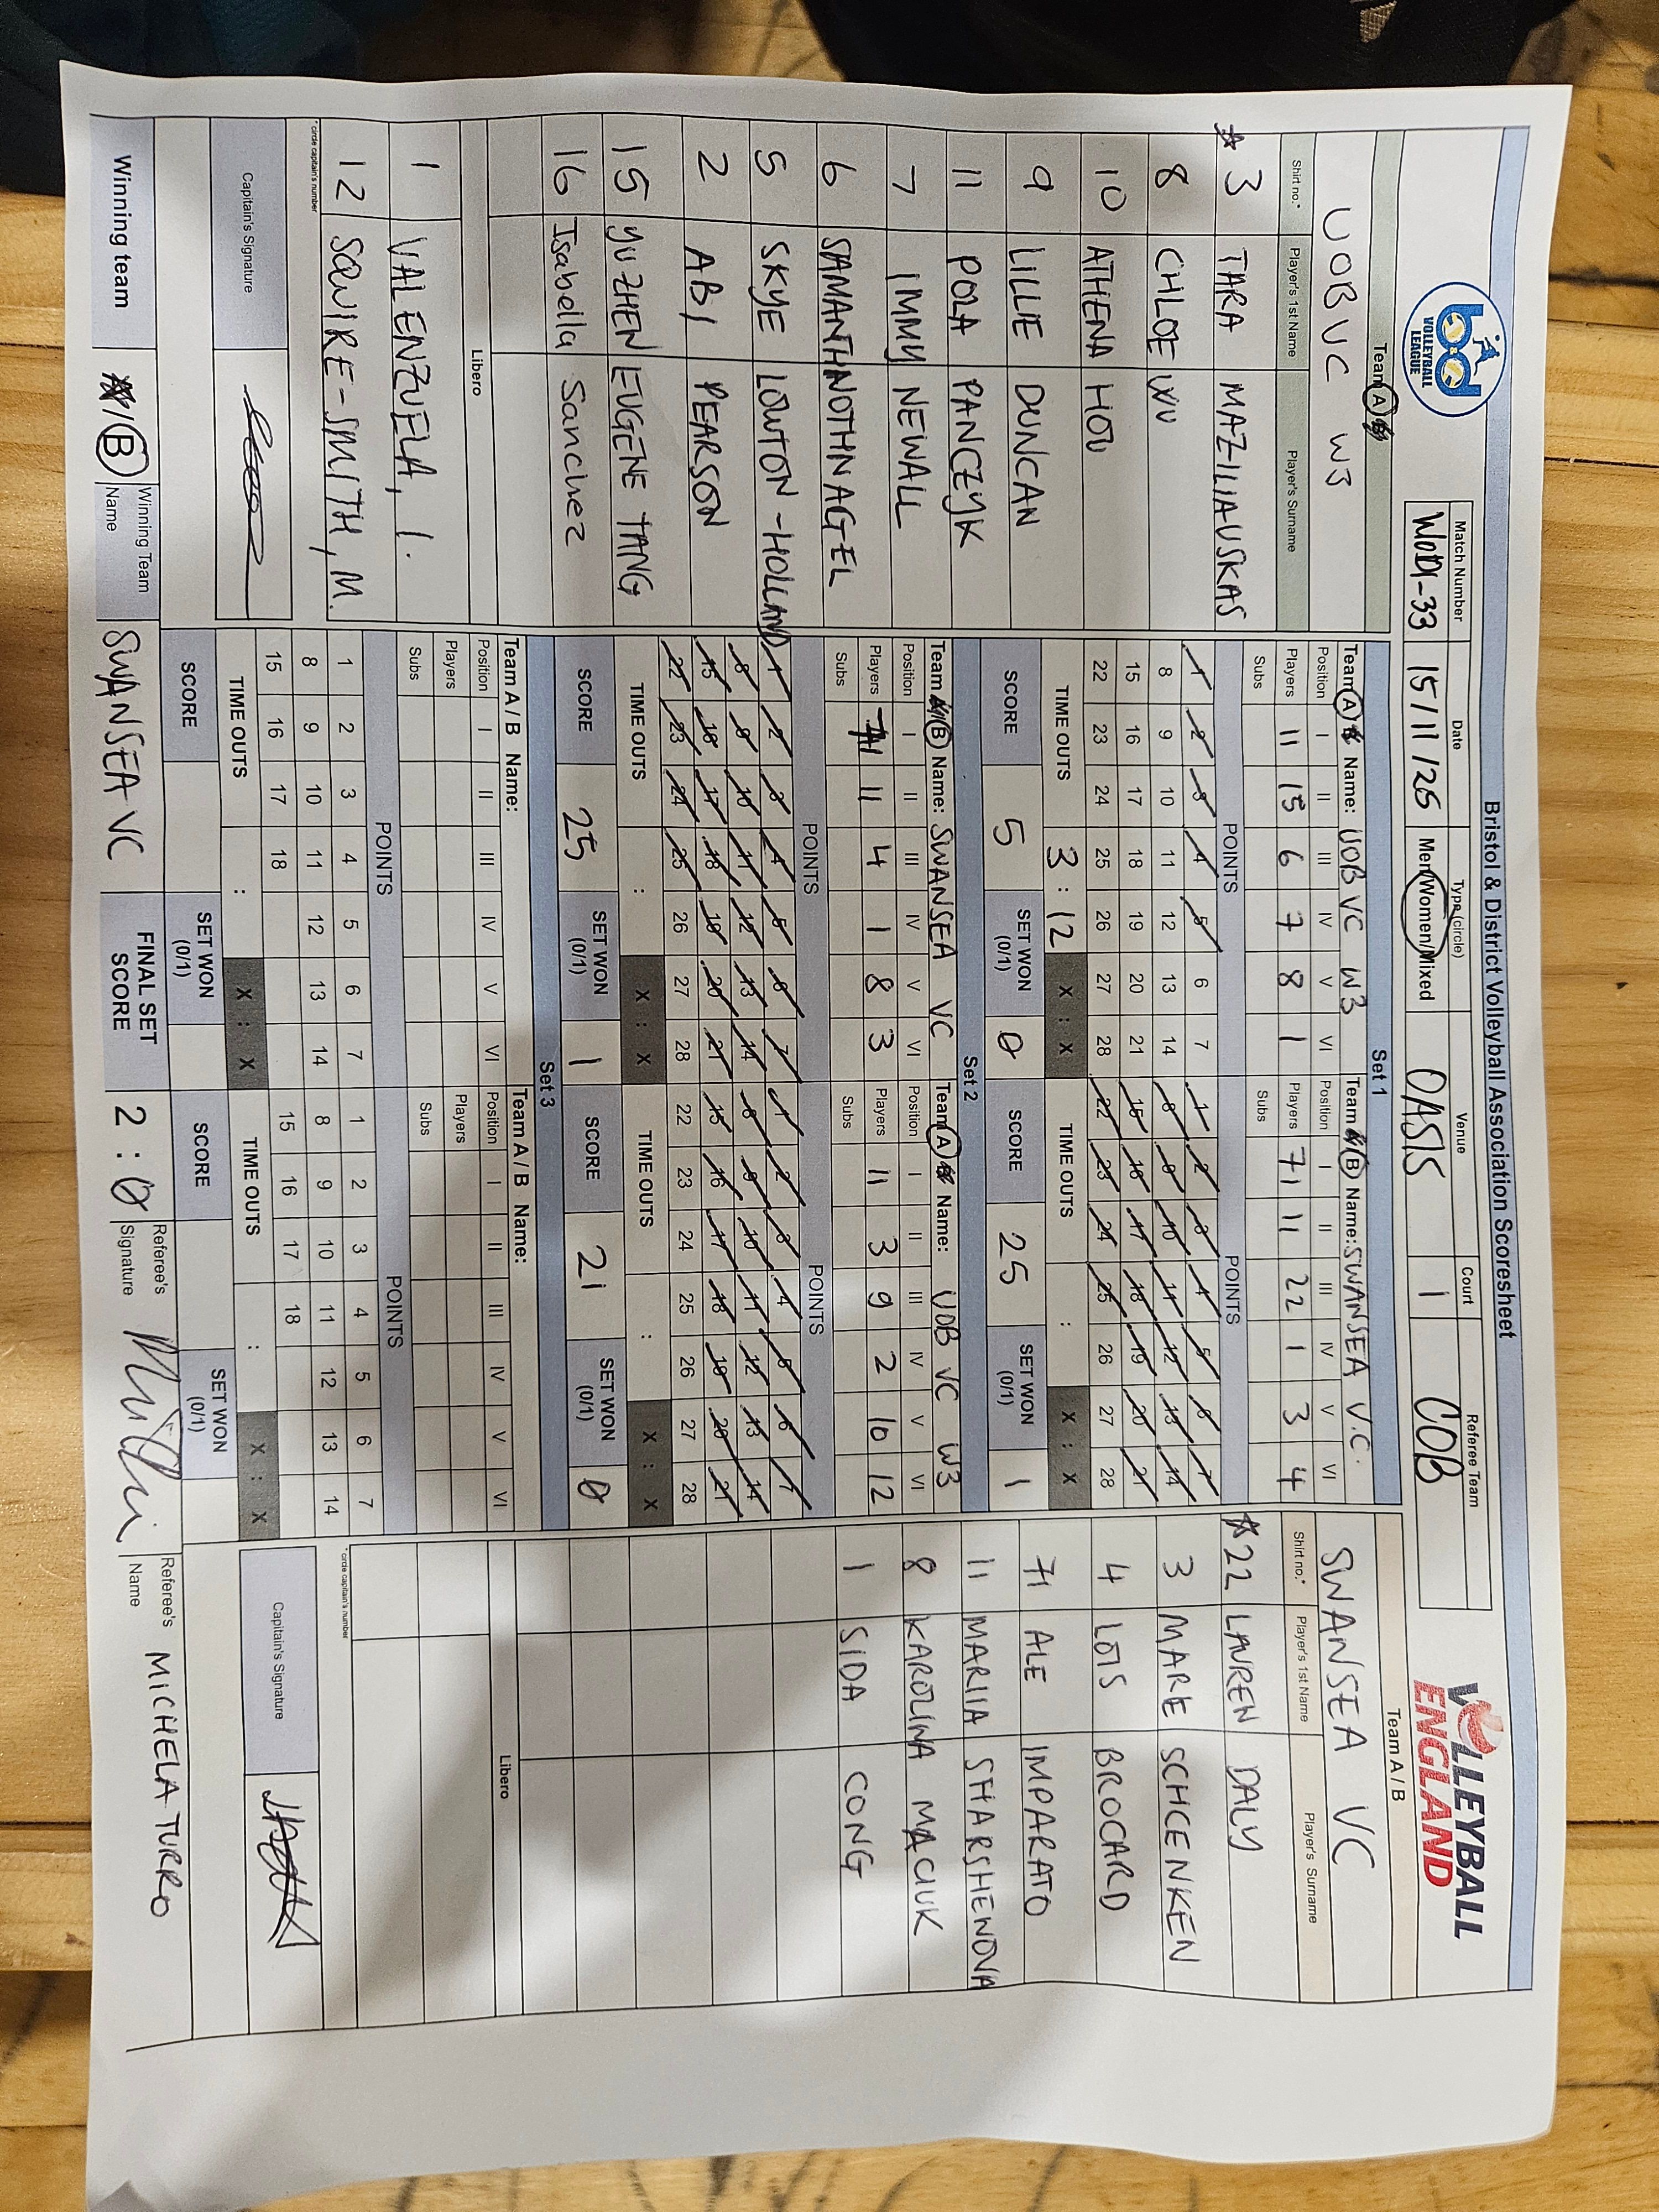 Bristol & District Volleyball Association Scoresheet
b&d VOLLEYBALL LEAGUE
Match Number Date Type (circle) Venue Court Referee Team
WOD1-33 15/11/25 Men/Women/Mixed OASIS 1 COB
VOLLEYBALL ENGLAND
Team A
UOBVC W3
Shirt no.* Player's 1st Name Player's Surname
3 TARA MAZILIAUSKAS
8 CHLOE WU
10 ATHENA HOU
9 LILLIE DUNCAN
11 POLA PANCZYK
7 IMMY NEWALL
6 SAMANTH NOTHNAGEL
5 SKYE LOWTON-HOLLAND
2 ABI PEARSON
15 YUZHEN EUGENE TANG
16 Isabella Sanchez
Libero
1 VALENZUELA, I.
12 SQUIRE-SMITH, M.
*circle captain's number
Captain's Signature
Set 1
Team A Name: UOB VC W3
Position I II III IV V VI
Players 11 15 6 7 8 1
Subs
POINTS
1 2 3 4 5 6 7
8 9 10 11 12 13 14
15 16 17 18 19 20 21
22 23 24 25 26 27 28
TIME OUTS 3 : 12 X : X
SCORE 5 SET WON (0/1) 0
Team B Name: SWANSEA V.C.
Position I II III IV V VI
Players 71 11 22 1 3 4
Subs
POINTS
1 2 3 4 5 6 7
8 9 10 11 12 13 14
15 16 17 18 19 20 21
22 23 24 25 26 27 28
TIME OUTS : X : X
SCORE 25 SET WON (0/1) 1
Set 2
Team B Name: SWANSEA VC
Position I II III IV V VI
Players 71 11 4 1 8 3
Subs
POINTS
1 2 3 4 5 6 7
8 9 10 11 12 13 14
15 16 17 18 19 20 21
22 23 24 25 26 27 28
TIME OUTS : X : X
SCORE 25 SET WON (0/1) 1
Team A Name: UOB VC W3
Position I II III IV V VI
Players 11 3 9 2 10 12
Subs
POINTS
1 2 3 4 5 6 7
8 9 10 11 12 13 14
15 16 17 18 19 20 21
22 23 24 25 26 27 28
TIME OUTS : X : X
SCORE 21 SET WON (0/1) 0
Set 3
Team A / B Name:
Position I II III IV V VI
Players
Subs
POINTS
1 2 3 4 5 6 7
8 9 10 11 12 13 14
15 16 17 18
TIME OUTS : X : X
SCORE SET WON (0/1)
Team A / B Name:
Position I II III IV V VI
Players
Subs
POINTS
1 2 3 4 5 6 7
8 9 10 11 12 13 14
15 16 17 18
TIME OUTS : X : X
SCORE SET WON (0/1)
Team A / B
SWANSEA VC
Shirt no.* Player's 1st Name Player's Surname
22 LAUREN DALY
3 MARE SCHCENKEN
4 LOIS BROCARD
71 ALE IMPARATO
11 MARIIA STARSHENOVA
8 KAROLINA MACIUK
1 SIDA CONG
Libero
*circle captain's number
Captain's Signature
Winning team A/B Winning Team Name SWANSEA VC FINAL SET SCORE 2 : 0 Referee's Signature Referee's Name MICHELA TURRO